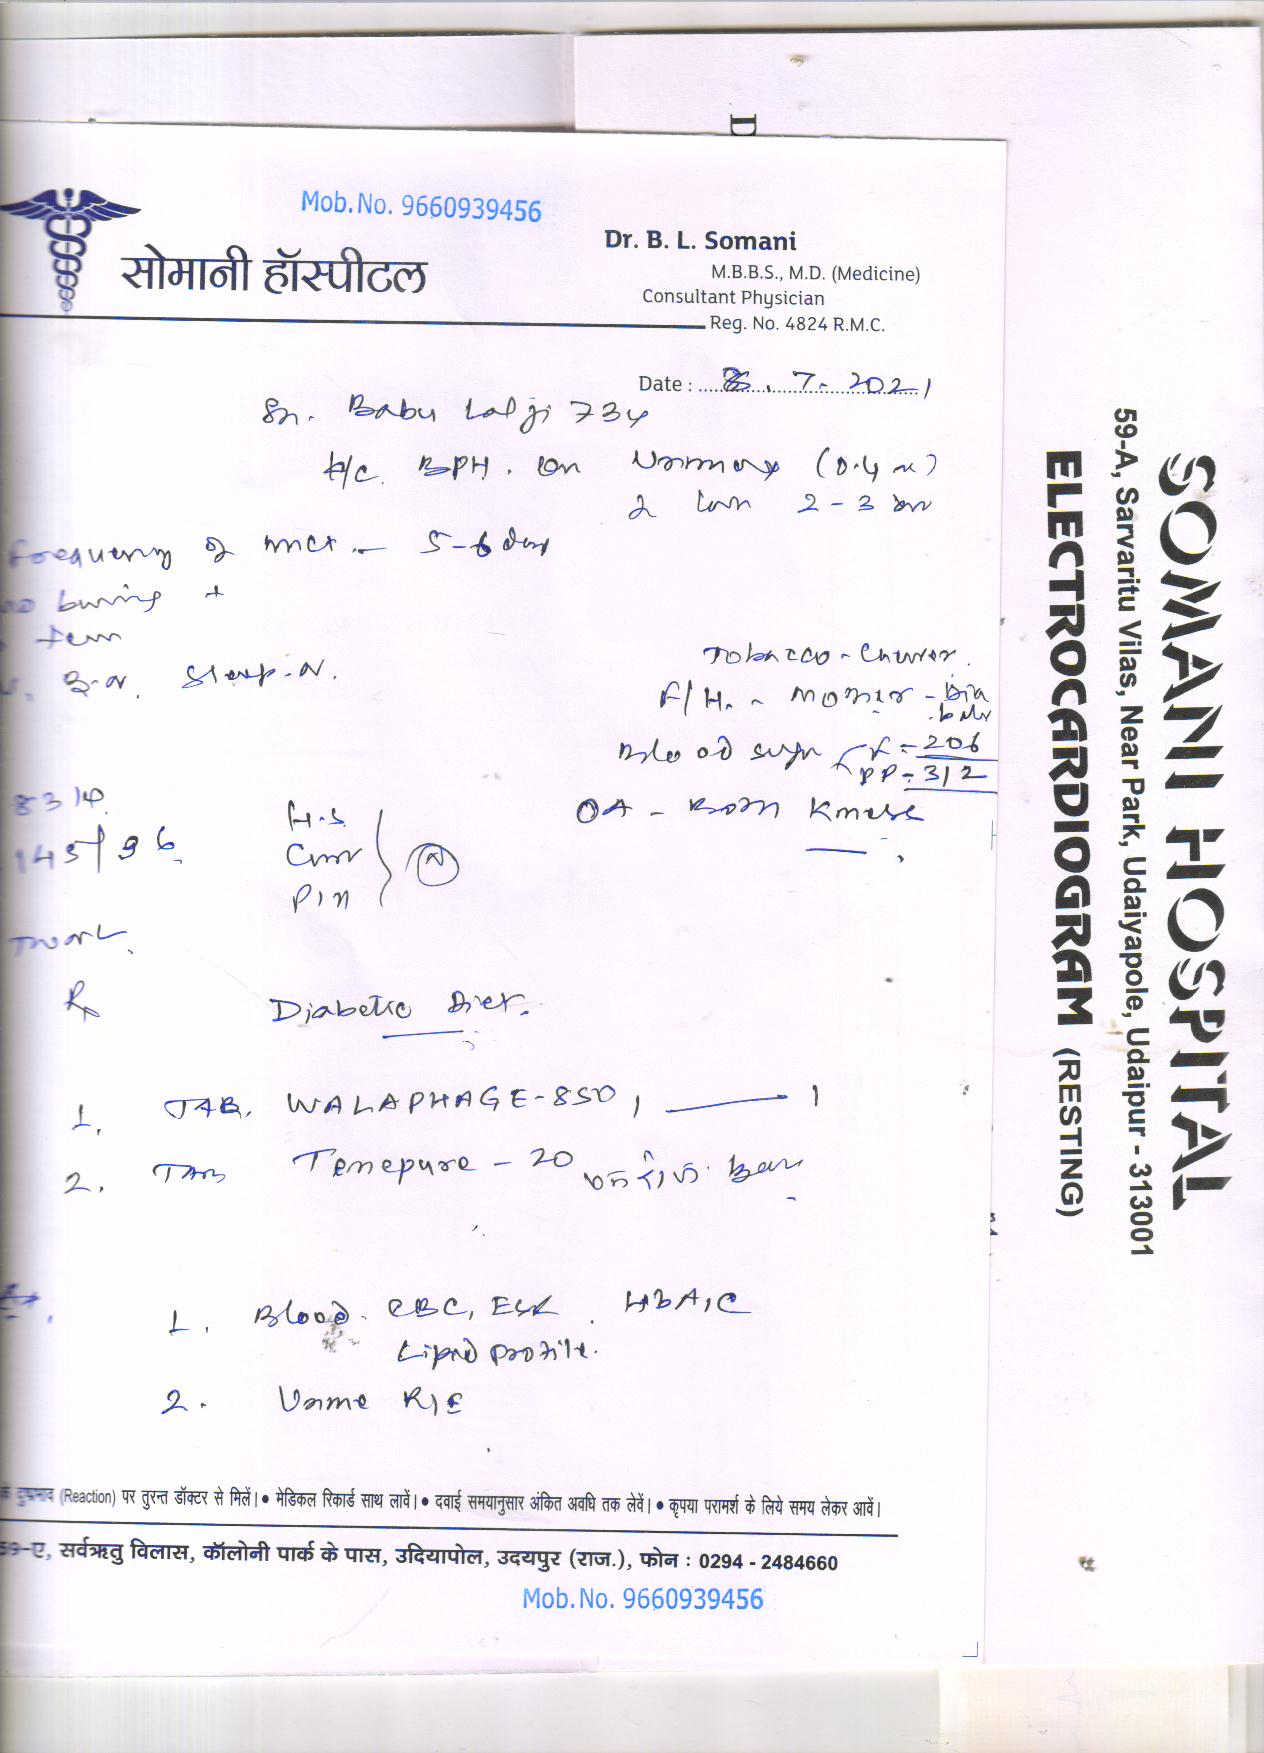 D
Mob.No. 9660939456
सोमानी हॉस्पीटल
Dr. B. L. Somani
M.B.B.S., M.D. (Medicine)
Consultant Physician
Reg. No. 4824 R.M.C.
Date : 8.7.2021
Babu Lalji 73y
k/c. BPH. on
2-3
frequency of mict - 5-6 day
burning +
Sleep-N.
Tobacco - Chewer.
F/H. - Mother - Dia
Blood sugar F - 206
PP - 312
OA - Both Knees
143/96
H.S.
N
Rx
Diabetic Diet.
1. TAB. WALAPHAGE-850 1 — 1
2. TAB Tenepure - 20
1. Blood. CBC, ESR. HBA1C
Lipid profile.
2. Urine R/E
दुष्प्रभाव (Reaction) पर तुरन्त डॉक्टर से मिलें। • मेडिकल रिकार्ड साथ लावें। • दवाई समयानुसार अंकित अवधि तक लेवें। • कृपया परामर्श के लिये समय लेकर आवें।
59-ए, सर्वऋतु विलास, कॉलोनी पार्क के पास, उदियापोल, उदयपुर (राज.), फोन : 0294 - 2484660
Mob.No. 9660939456
SOMANI HOSPITAL
59-A, Sarvaritu Vilas, Near Park, Udaiyapole, Udaipur - 313001
ELECTROCARDIOGRAM (RESTING)